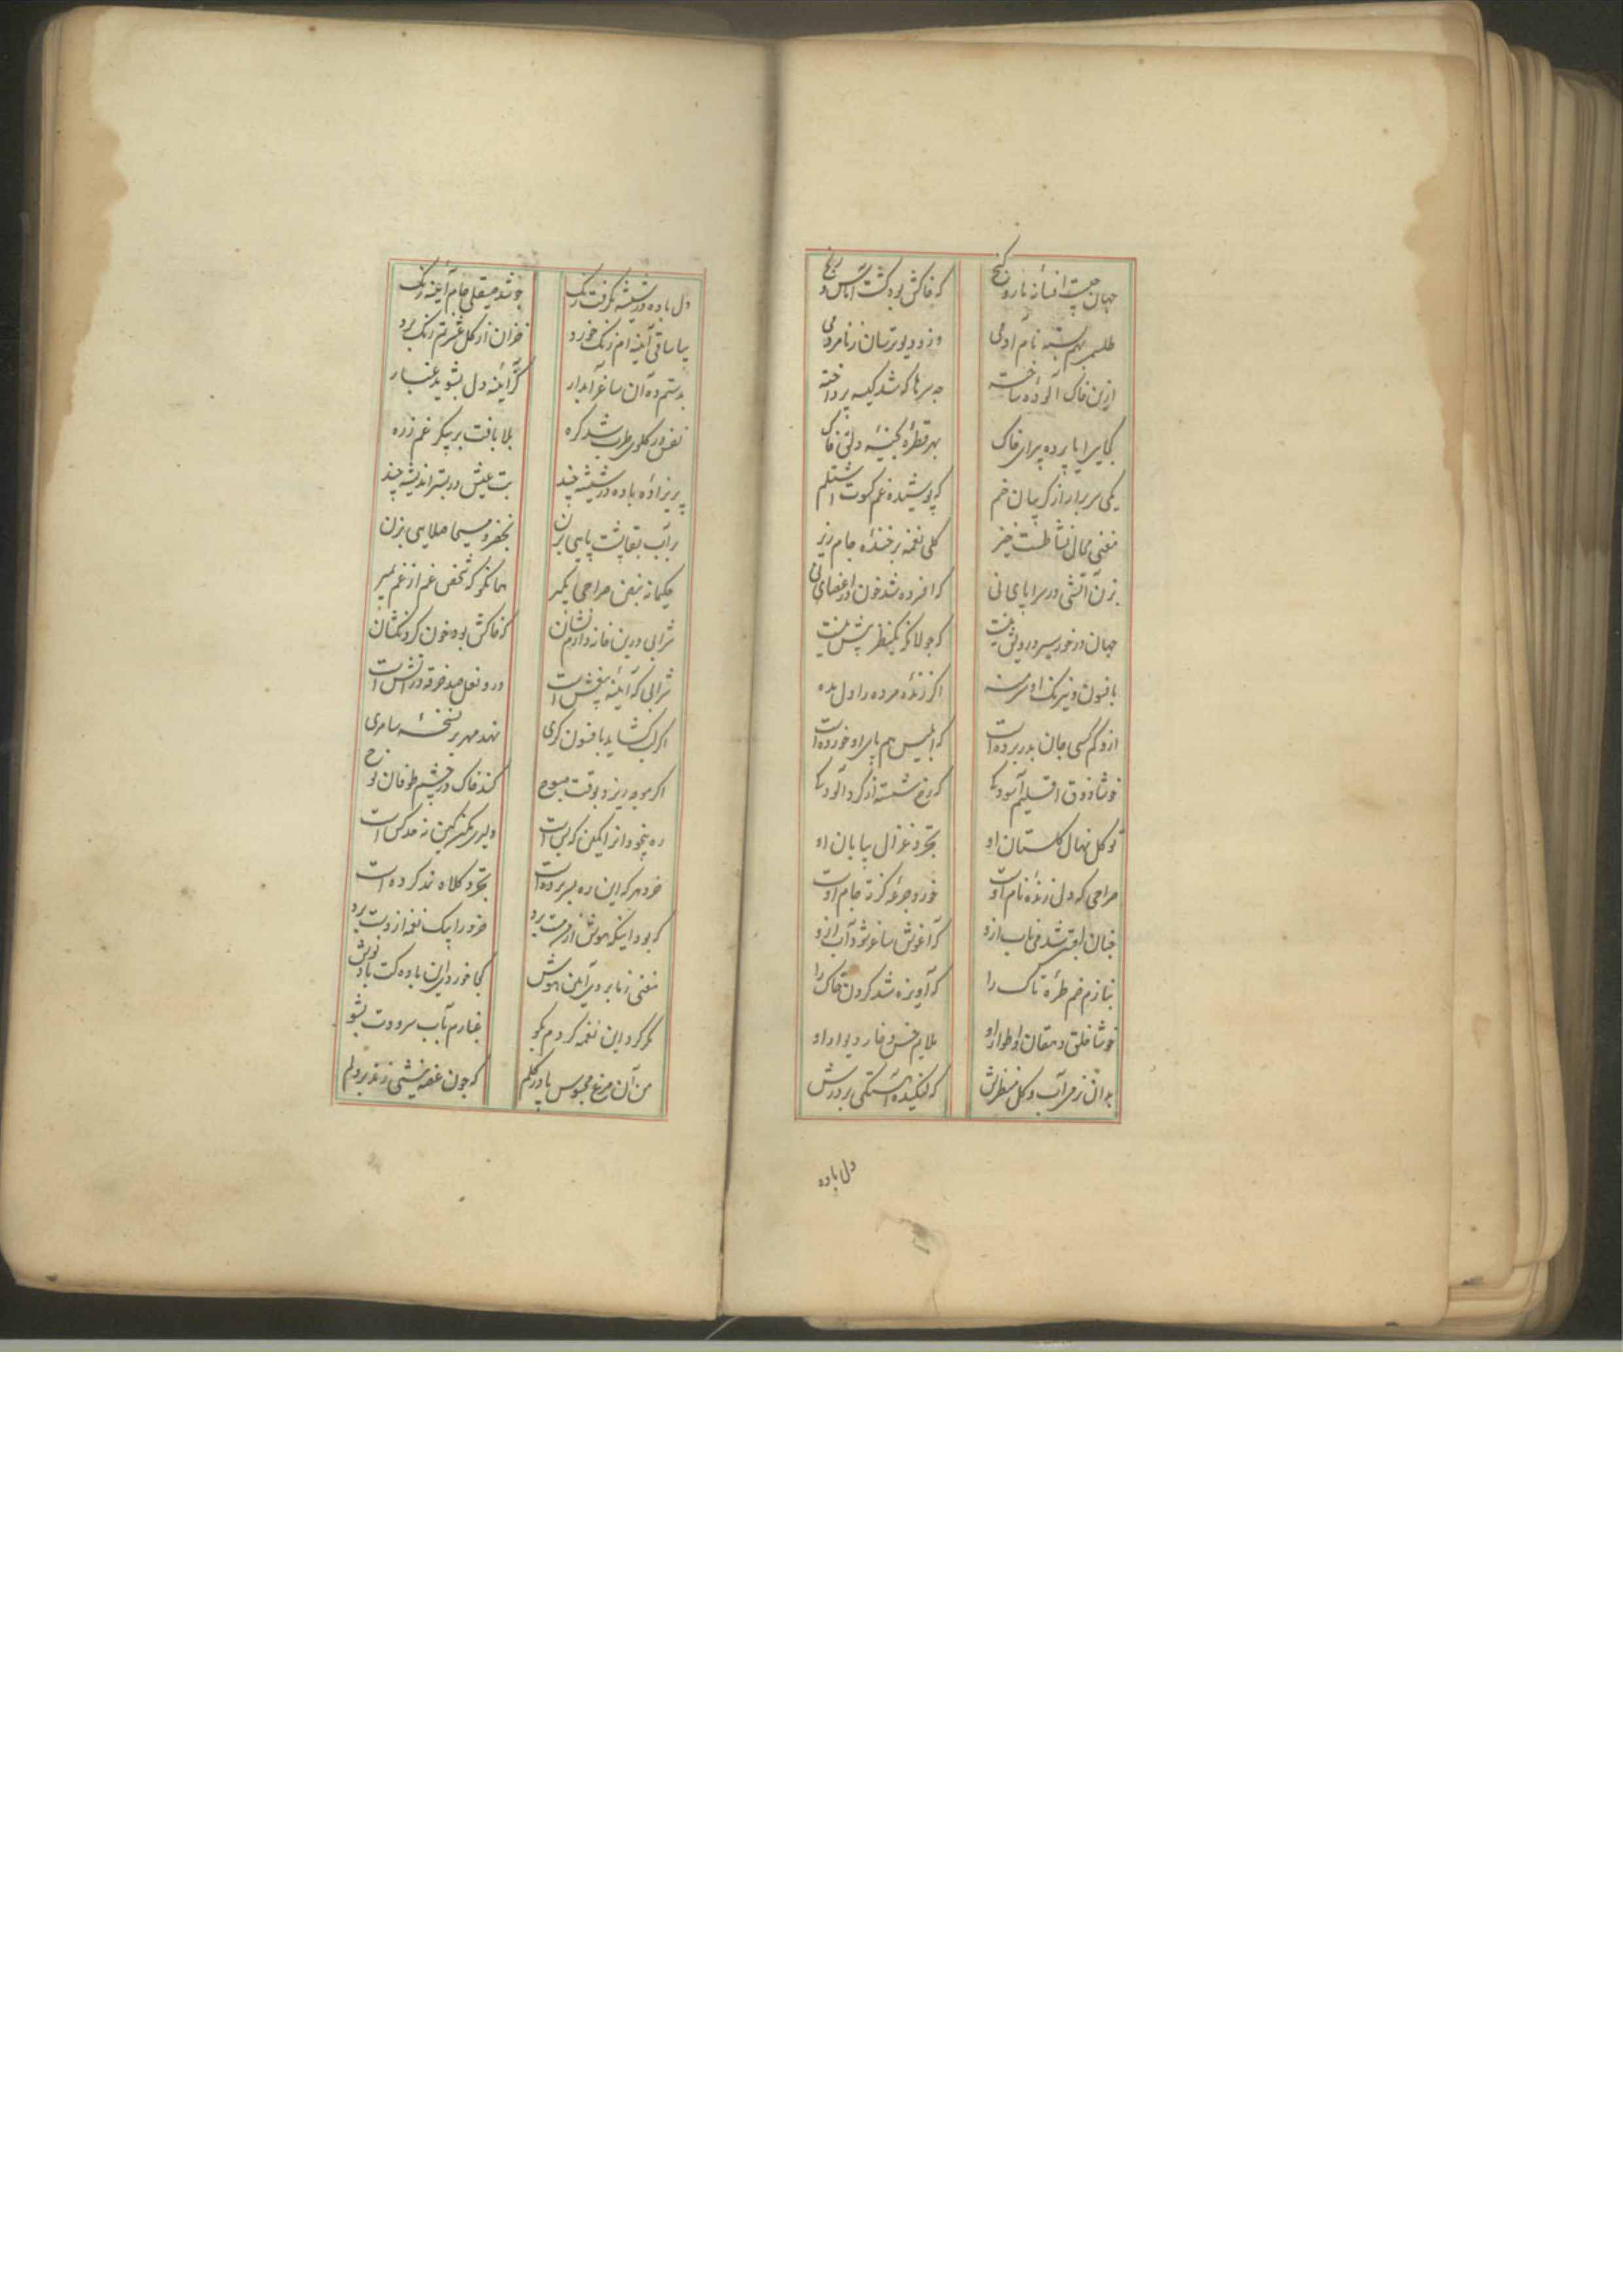 جهان چیست افسانه مار و کنج
که خاکش بود کشت اساس رنج
طلسمی بهم بسته نام آدمی
وزو دیو ترسان ز نامردمی
ازین خاک آلوده ساخته
چه سرها که شد کیسه پرداخته
کجایی ایا پرده پیرای خاک
بهر قطره کنجینه دلق خاک
یکی سر برار از کریبان خم
که پوشیده غم کسوت اشتلم
مغنی مجال نشاطست خیز
کلی نغمه بر خنده جام ریز
بزن آتشی در سراپای نی
که افسرده شد خون در اعضای نی
جهان در خور سیر درویش نیست
که جولانکه یکنظر بیش نیست
بافسون و نیرنک او سر منه
اکر زنده مرده را دل بده
ازو کم کسی جان بدر برده است
که ابلیس هم پای او خورده است
خوشا ذوق اقلیم آسودکی
که رخ شسته از کرد آلودکی
توکل نهال کلستان او
تجرد غزال بیابان او
صراحی که دل زنده نام اوست
خورد جرعه کز ته جام اوست
چنان لعل شد می ناب ازو
که آغوش ساغر شود آب ازو
بنازم خم طره تاک را
که آویزه شد کردن خاک را
خوشا خلق دهقان و اطوار او
ملایم خس و خار دیوار او
که لنکیده آهستکی بر درش
دل باده
دل باده در شیشه بکرفت زنک
چو شد صیقلی جام آیینه رنک
بیا ساقی آیینه ام زنک خورد
خزان از کل عشرتم رنک برد
بدستم ده آن ساغر آبدار
کز آیینه دل بشوید غبار
نفس در کلوی طرب شد کره
بلا بافت بر پیکر غم زره
پریزاده باده در شیشه چند
بت عیش در بستر اندیشه چند
بر آب بقا پشت پایی بزن
بخضر و مسیحا صلایی بزن
حکیمانه نبض صراحی بکیر
همانکو که شخص غم از غم بمیر
شرابی درین خانه دارم نشان
که خاکش بود خون کردنکشان
شرابی که آیینه بیغش است
درو نعل صد خرقه در آتش است
اکر لب کشاید بافسون کری
نهد مهر بر نسخه سامری
اکر موجه ریزد بوقت صبوح
کند خاک در چشم طوفان نوح
دلیری مکن کین نه حد کس است
خرد هر که این ره بسر برده است
تجرد کلاه نمد کرده است
که بود اینکه هوش از سر مست برد
خرد را بیک نغمه از دست برد
مغنی ز ما برد آیین هوش
کجا خورد این باده کت باد نوش
مکرر کرد این نغمه کردم بکو
غبارم بآب سرودت بشو
من آن مرغ محبوس پا در کلم
که چون غصه نیشی زند بر دلم